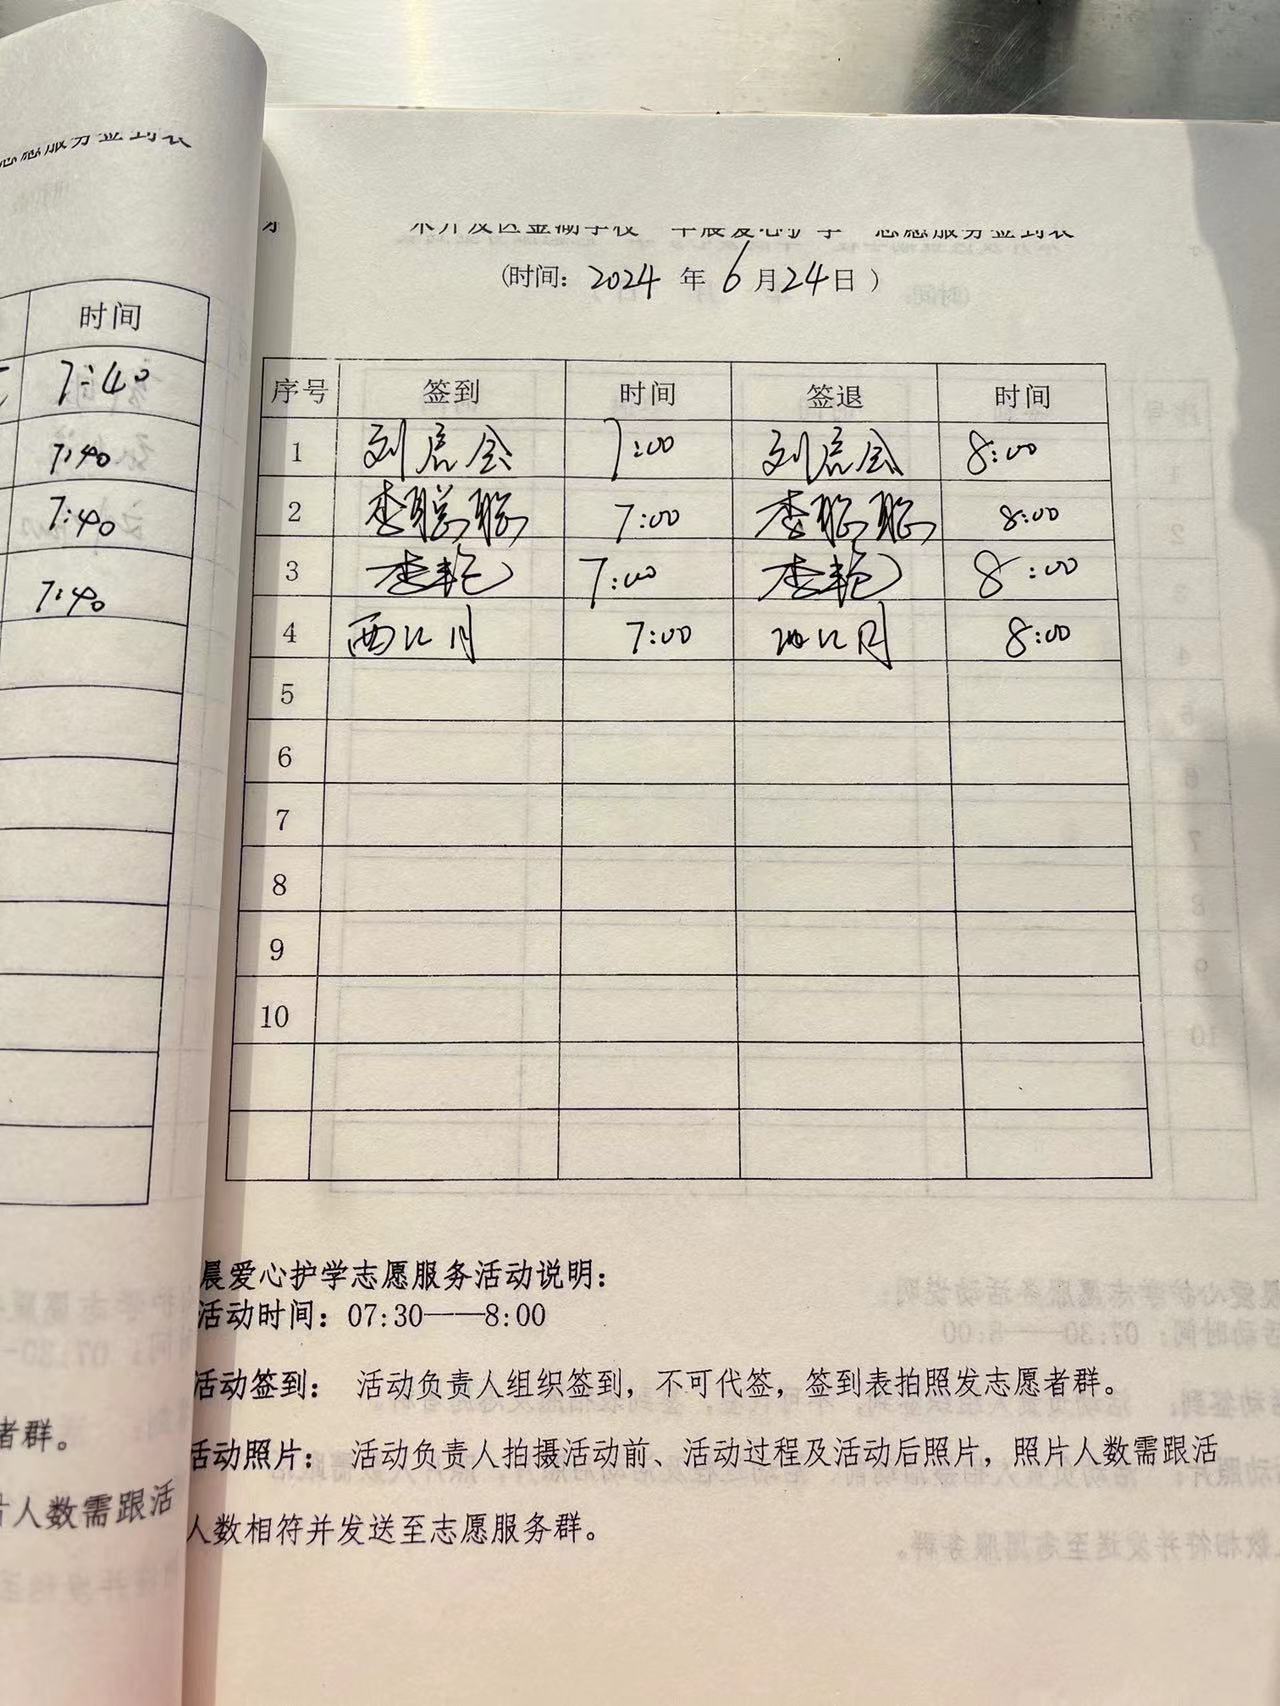 时间
7:40
7:40
7:40
7:40
者群。
片人数需跟活
(时间: 2024 年 6 月 24 日 )
序号 签到 时间 签退 时间
1 刘 会 7:00 刘 会 8:00
2 李聪聪 7:00 李聪聪 8:00
3 李艳 7:00 李艳 8:00
4 西江月 7:00 江月 8:00
5
6
7
8
9
10
晨爱心护学志愿服务活动说明:
活动时间: 07:30——8:00
活动签到: 活动负责人组织签到, 不可代签, 签到表拍照发志愿者群。
活动照片: 活动负责人拍摄活动前、活动过程及活动后照片, 照片人数需跟活
人数相符并发送至志愿服务群。